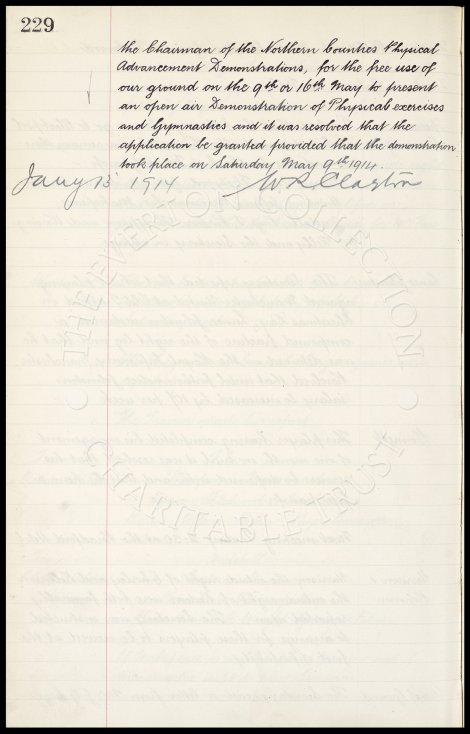 229
the Chairman of the Northern Counties Physical
Advancement Demonstrations, for the free use of
our ground on the 9th or 16th May to present
an open air Demonstration of Physical exercises
and Gymnastics and it was resolved that the
application be granted provided that the demonstration
took place on Saturday May 9th 1914.
Jany 13 1914 W R Clayton
THE EVERTON COLLECTION
CHARITABLE TRUST